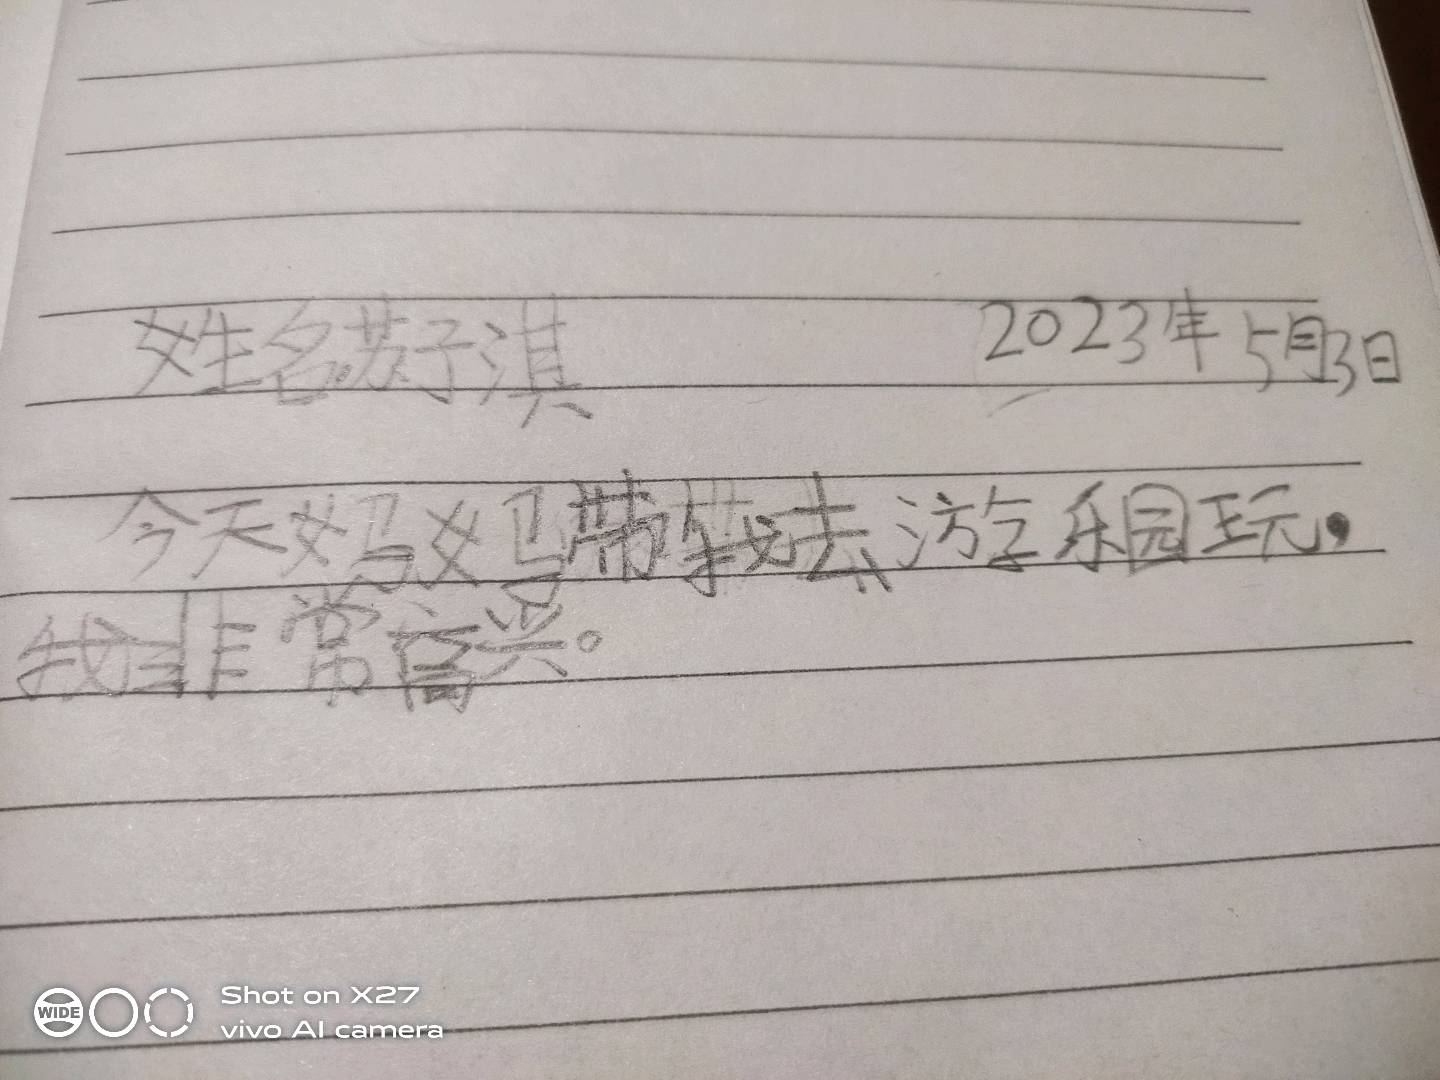 姓名苏子淇 2023年5月3日
今天妈妈带我去游乐园玩，
我非常高兴。
WIDE
Shot on X27
vivo AI camera